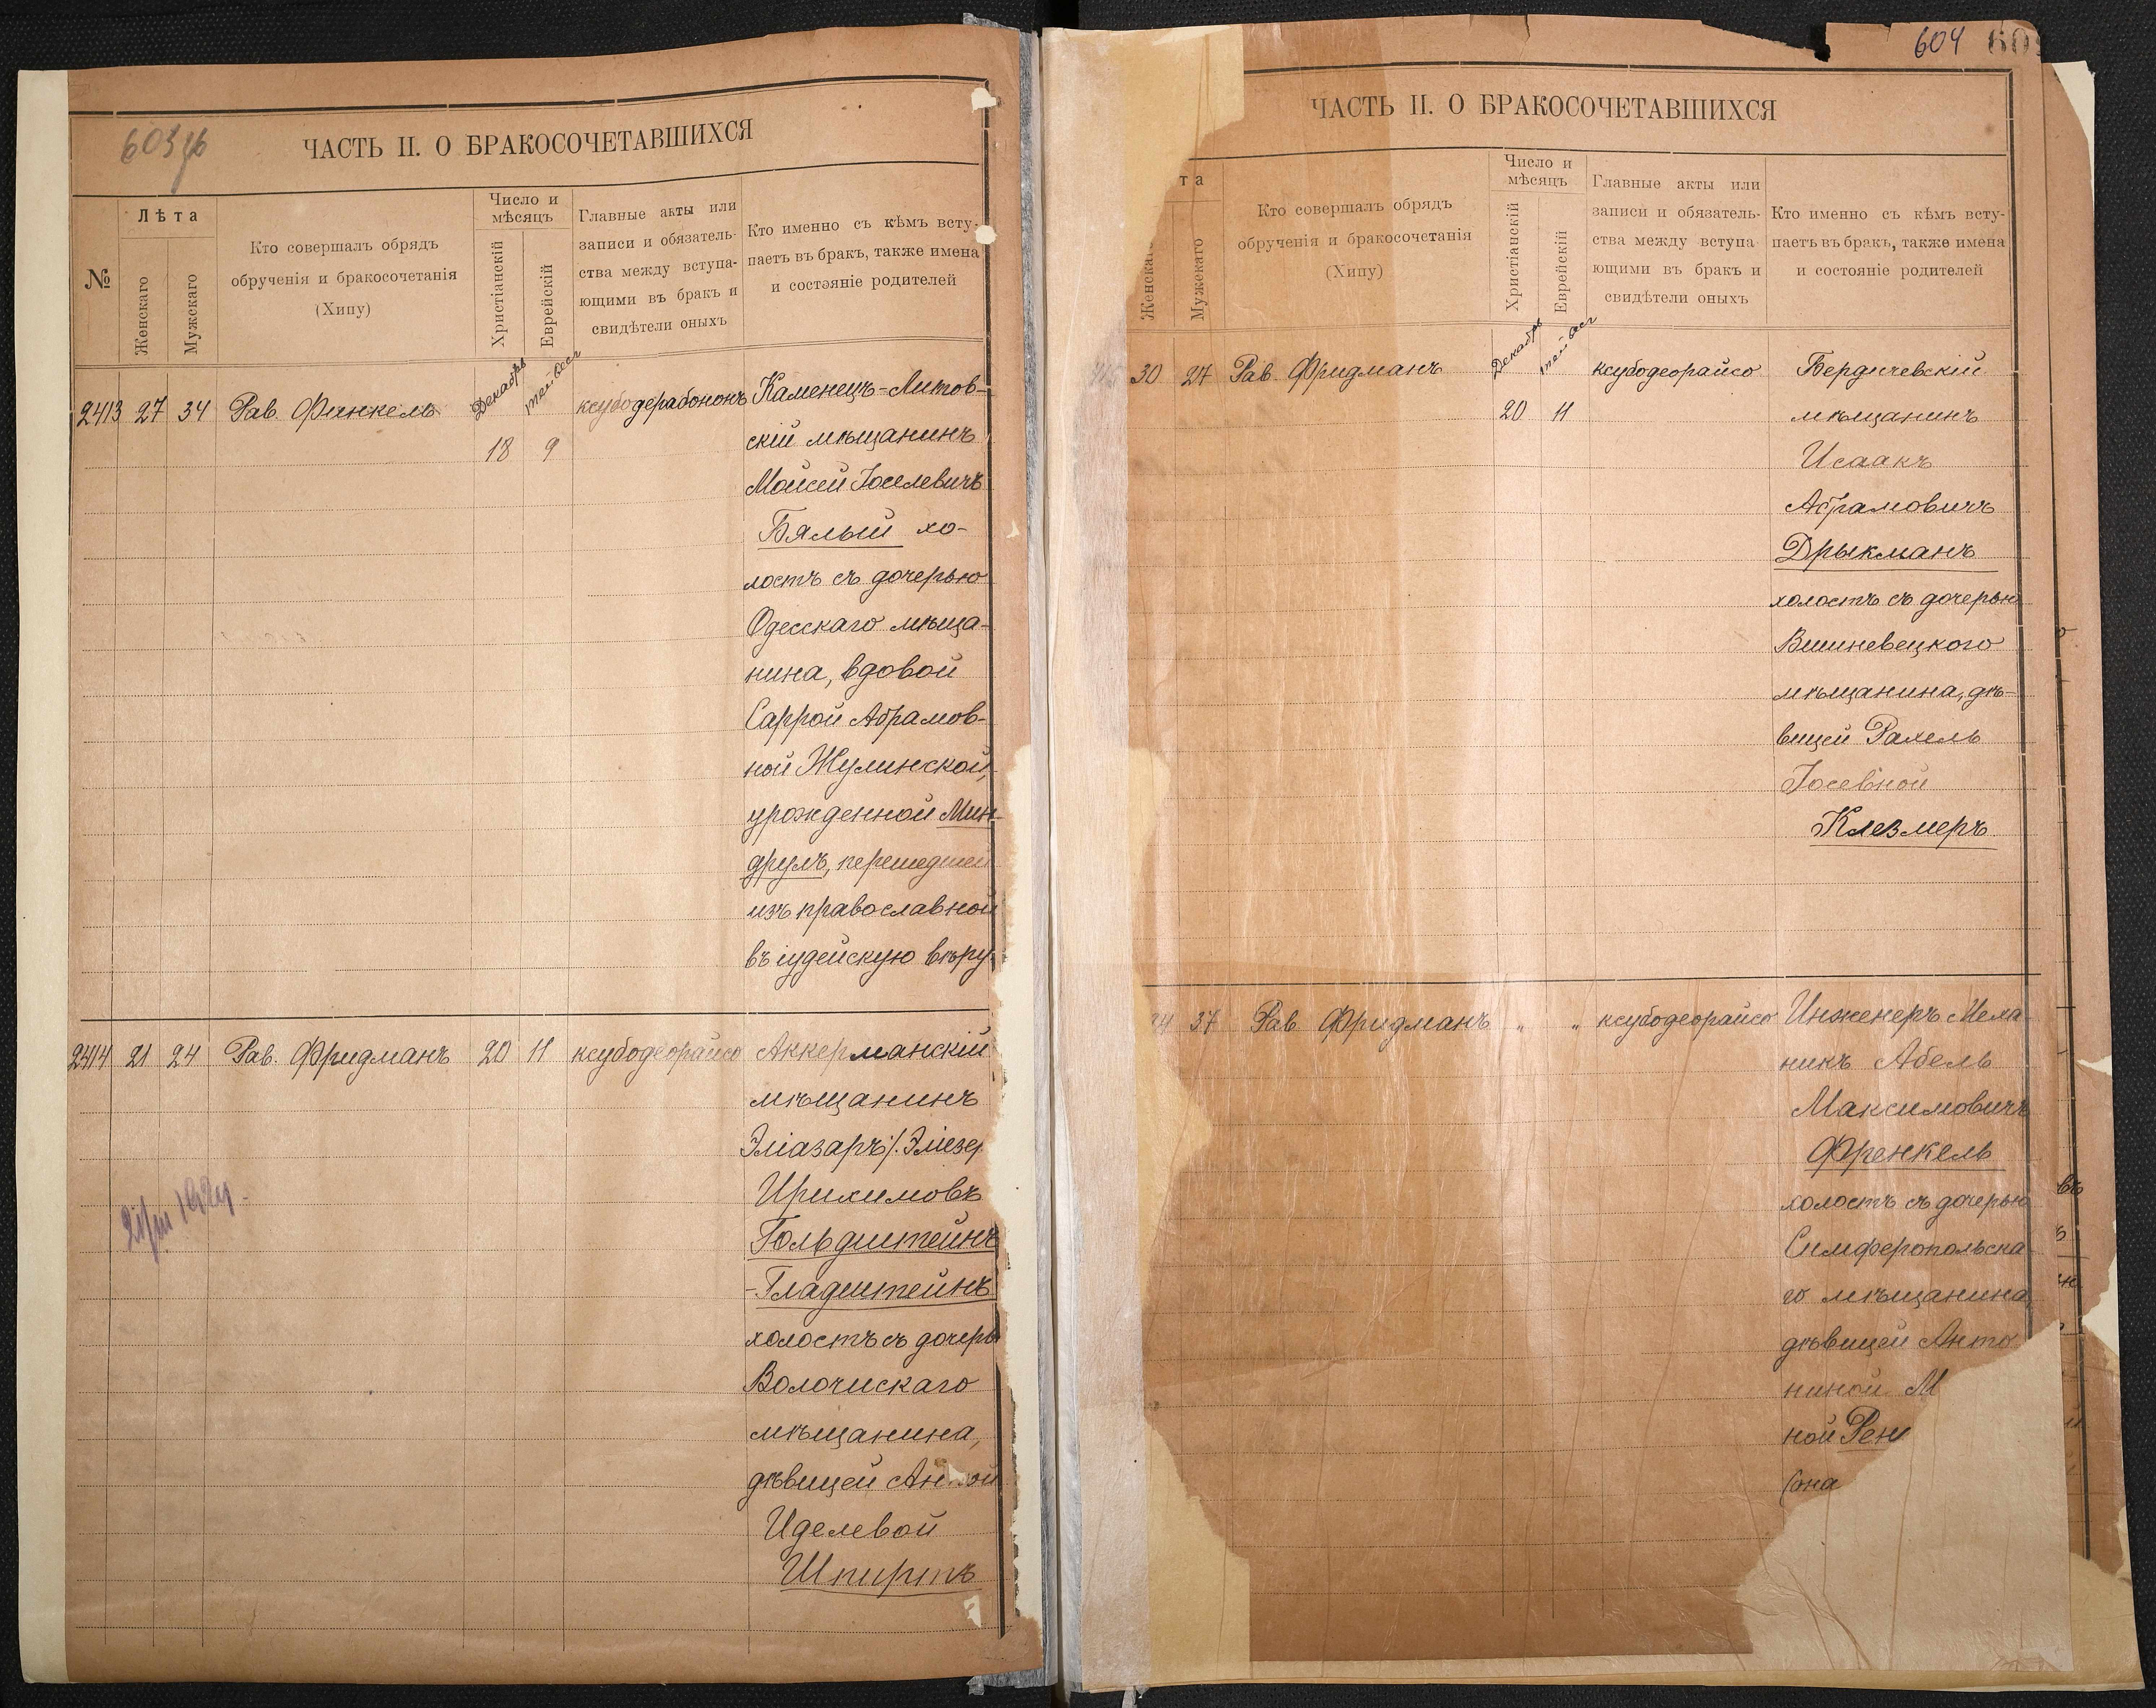 603 об
ЧАСТЬ II. О БРАКОСОЧЕТАВШИХСЯ
№
Лѣта
Женскаго
Мужскаго
Кто совершалъ обрядъ
обрученія и бракосочетанія
(Хипу)
Число и
мѣсяцъ
Христіанскій
Еврейскій
Главные акты или
записи и обязатель-
ства между вступа-
ющими въ бракъ и
свидѣтели оныхъ
Кто именно съ кѣмъ всту-
паетъ въ бракъ, также имена
и состояніе родителей
2413 27 34 Рав. Финкель Декабрь ксубодерабононъ Каменецъ-Литов-
18 9 скій мѣщанинъ
Мойсей Іоселевичъ
Бялый хо-
лостъ съ дочерью
Одесскаго мѣща-
нина, вдовой
Саррой Абрамов-
ной Жулинской,
урожденной Мин-
друлъ, перешедшей
изъ православной
въ іудейскую вѣру
2414 21 24 Рав. Фридманъ 20 11 ксубодеорайсо Аккерманскій
мѣщанинъ
Эліазаръ /. Эліезер
Ирихимовъ
Гольдштейнъ
-Гладштейнъ
холостъ съ дочерь
Волочискаго
мѣщанина,
дѣвицей
Иделевой
Шпиртъ
604
ЧАСТЬ II. О БРАКОСОЧЕТАВШИХСЯ
та
Женска
Мужскаго
Кто совершалъ обрядъ
обрученія и бракосочетанія
(Хипу)
Число и
мѣсяцъ
Христіанскій
Еврейскій
Главные акты или
записи и обязатель-
ства между вступа
ющими въ бракъ и
свидѣтели оныхъ
Кто именно съ кѣмъ всту-
паетъ въ бракъ, также имена
и состояніе родителей
30 27 Рав. Фридманъ Декабрь ксубодеорайсо Бердичевскій
20 11 мѣщанинъ
Исаакъ
Абрамовичъ
Дрыкманъ
холостъ съ дочерью
Вишневецкого
мѣщанина, дѣ-
вицей Рахель
Іосевной
Клезмеръ
37 Рав Фридманъ " " ксубодеорайсо Инженеръ Меха-
никъ Абель
Максимовичъ
Френкель
холостъ съ дочерью
Симферопольска-
го мѣщанина,
дѣвицей Анто
ниной М
ной Рен
(она